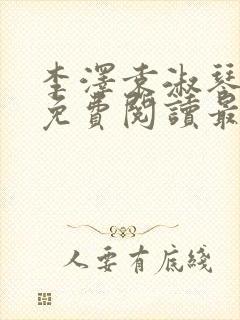 李澤袁淑琴
免費閱讀最
人要有底綫